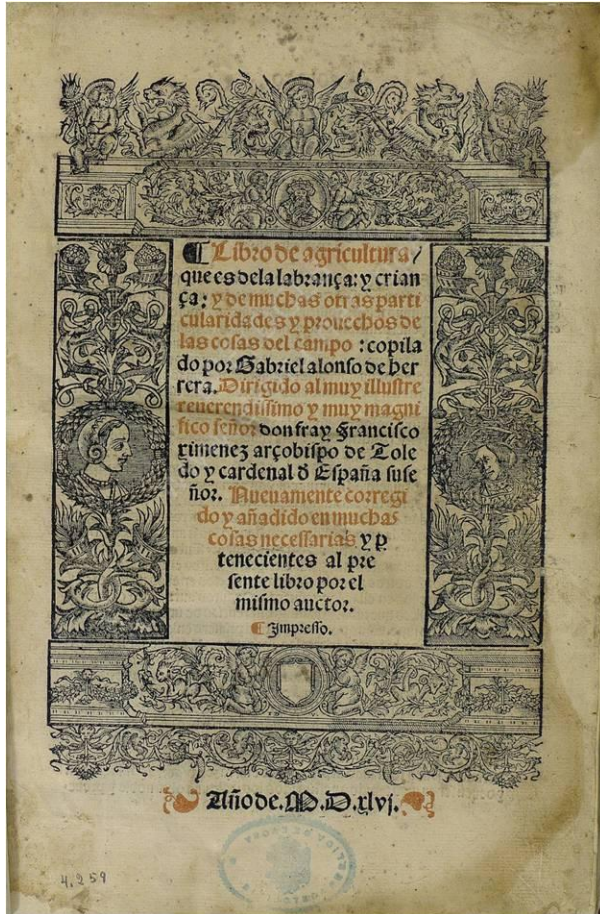 ¶ Libro de agricultura /
que es dela labrança: y crian
ça: y de muchas otras parti
cularidades y prouechos de
las cosas del campo : copila
do por Gabriel alonso de her
rera. Dirigido al muy illustre
reuerendissimo y muy magni
fico señor don fray Francisco
ximenez arçobispo de Tole
do y cardenal đ España su se
ñor. Nueuamente corregi
do y añadido en muchas
cosas necessarias y ꝑ
tenecientes al pre
sente libro por el
mismo auctor.
¶ Impresso.
Año de. M. D. xlvj.
4.259